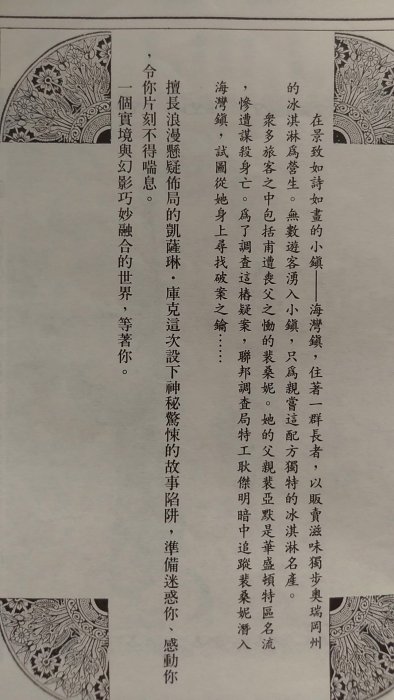 在景致如詩如畫的小鎮——海灣鎮，住著一群長者，以販賣滋味獨步奧瑞岡州
的冰淇淋為營生。無數遊客湧入小鎮，只為親嘗這配方獨特的冰淇淋名產。
眾多旅客之中包括甫遭喪父之慟的裴桑妮。她的父親裴亞默是華盛頓特區名流
，慘遭謀殺身亡。為了調查這樁疑案，聯邦調查局特工耿傑明暗中追蹤裴桑妮潛入
海灣鎮，試圖從她身上尋找破案之鑰……
擅長浪漫懸疑佈局的凱薩琳・庫克這次設下神秘驚悚的故事陷阱，準備迷惑你、感動你
，令你片刻不得喘息。
一個實境與幻影巧妙融合的世界，等著你。